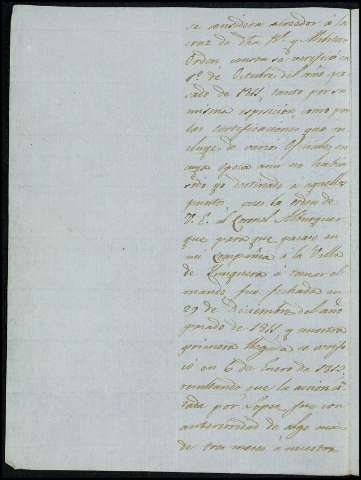 se considera acreedor á la
cruz de dha Rl. y Militar
Orden, cuera se verificó en
1º. de Octubre del año pa-
sado de 1811, tanto por su
misma esposicion, como por
las certificaciones que in-
cluye de varios Oficiales en
cuya época aun no habia
sido yo destinado á aquellos
puntos, pues la orden de
V. E. al Coronel Alburquer-
que para que pasase en
mi Compañia á la Villa
de Junquera á tomar el
mando fue fechada en
29 de Diciembre del año
pasado de 1811 y nuestra
primera llegada se verifi-
có en 6 de Enero de 1812,
resultando que la accion ci-
tada por Lopez fue con
anterioridad de algo mas
de tres meses á nuestra